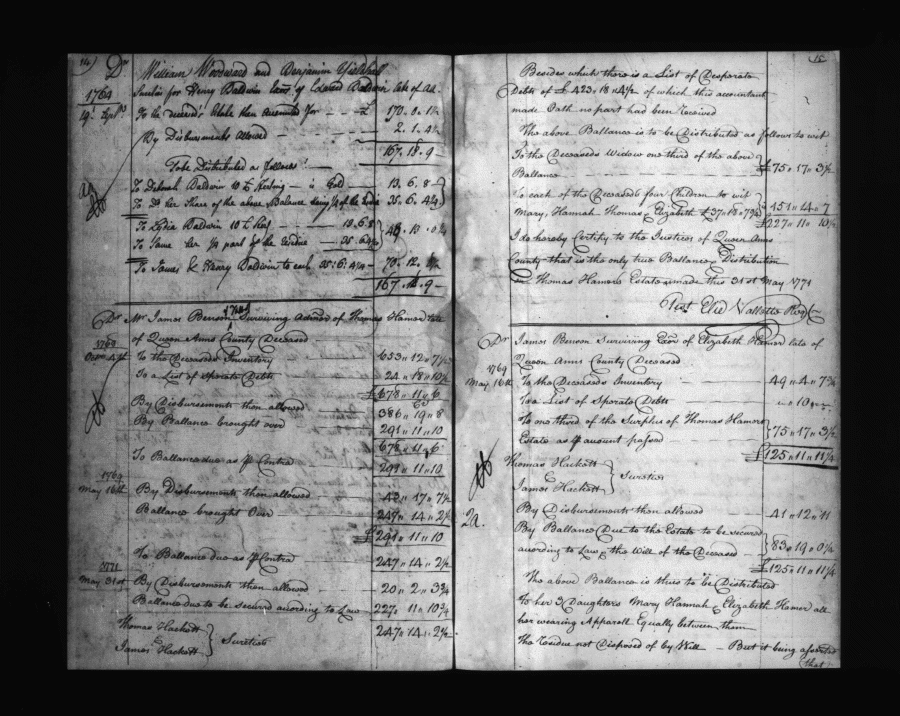 14
Dr William Woodward and Benjamin
1769 Sureties for Henry Baldwin of Edward Baldwin late of
19 Sept To the deceased's Estate then accounted for - - - £ 170. 0. 1¾
By Disbursements Allowed 2. 1. 4¾
167. 18. 9
To be Distributed as follows:
To Deborah Baldwin 10 £ Sterling is Gold 13. 6. 8
To her Share of the above Balance being ¼ of the 35. 6. 4¼
To Lydia Baldwin 10 £ 13. 6. 8
To Same her ¼ part of the Residue 35. 6. 4¼ 48. 13. 0¼
To James & Henry Baldwin to each 35: 6: 4¼ 70. 12.
167. 18. 9
1768
Dr Mr James Benson Surviving Admor of Thomas Hamer late
of Queen Anns County Deceased
1768
To the Deceaseds Inventory 653 " 12 " 7½
To a List of Sperate Debts 24 " 18 " 10½
£ 678 " 11 " 6
By Disbursements then allowed 386 " 19 " 8
By Ballance brought over 291 " 11 " 10
678 " 11 " 6
To Ballance due as Pr Contra 291 " 11 " 10
1769
May 16th By Disbursements then allowed 43 " 17 " 7½
Ballance brought Over 247 " 14 " 2½
£ 291 " 11 " 10
To Ballance due as Pr Contra 247 " 14 " 2½
1771
May 31st By Disbursements then allowed 20 " 2 " 3¾
Ballance due to be Secured according to Law 227 " 11 " 10¾
247 " 14 " 2½
Thomas Hackett
James Hackett } Sureties
15
Besides which there is a List of Desperate
Debts of £ 423 " 18 " 4½ of which this accountant
made Oath no part had been received
The above Ballance is to be Distributed as follows to wit
To the Deceaseds Widow one third of the above
Ballance £ 75 " 17 " 3½
To each of the Deceaseds four Children to wit
Mary, Hannah Thomas & Elizabeth £ 37 " 18 " 7¾ 151 " 14 " 7
£ 227 " 11 " 10½
I do hereby Certify to the Justices of Queen Anns
County that is the only true Ballance & Distribution
on Thomas Hamers Estate made this 31st May 1771
Test Elie Vallette Regr
Dr James Benson Surviving Exor of Elizabeth Hamer late of
Queen Anns County Deceased
1769
May 16th To the Deceaseds Inventory 49 " 4 " 7¾
To a List of Sperate Debts " " 10 " "
To one third of the Surplus of Thomas Hamers
Estate as Pr account passed 75 " 17 " 3½
£ 125 " 11 " 11¼
Thomas Hackett
James Hackett } Sureties
By Disbursements then allowed 41 " 12 " 11
By Ballance Due to the Estate to be secured
according to Law & the Will of the Deceased 83 " 19 " 0¼
£ 125 " 11 " 11¼
The above Ballance is thus to be Distributed
To her 3 Daughters Mary Hannah & Elizabeth Hamer all
her wearing Apparell Equally between them
The residue not Disposed of by Will - But it being asserted
that